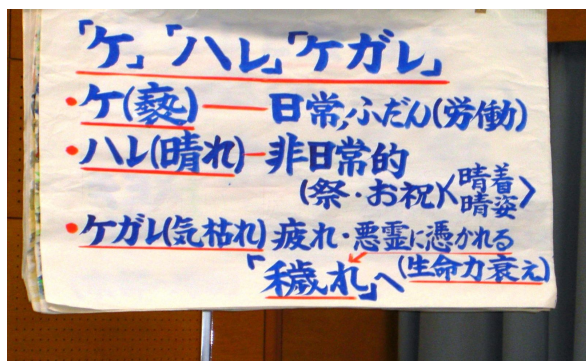 「ケ」「ハレ」「ケガレ」
・ケ(褻)——日常,ふだん(労働)
・ハレ(晴れ)—非日常的
(祭・お祝)〈晴着
晴姿〉
・ケガレ(気枯れ)疲れ・悪霊に憑かれる
(生命力衰え)
「穢れ」へ